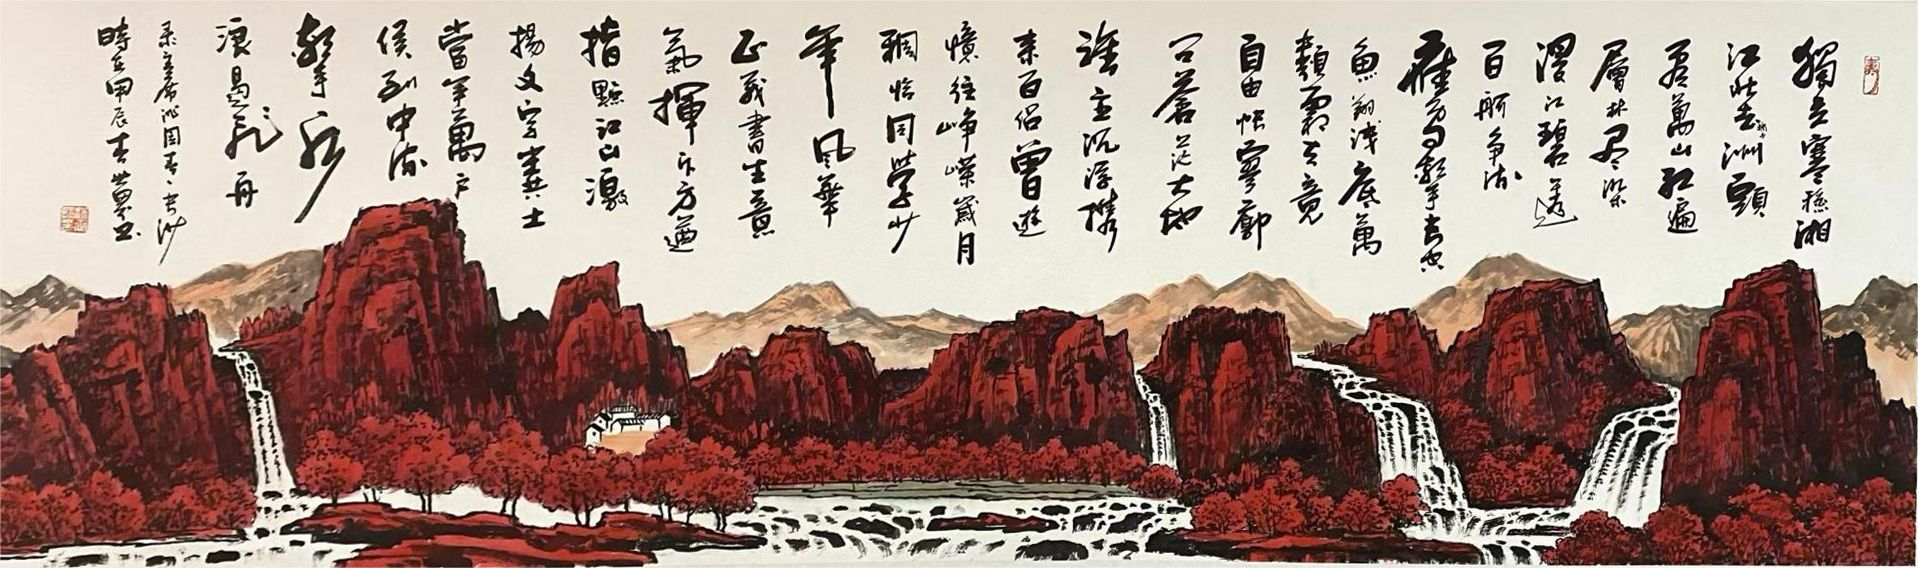 獨立寒秋湘
江北去橘子洲頭
看萬山紅遍
層林尽染
漫江碧透
百舸争流
鹰擊長空
魚翔浅底萬
類霜天竞
自由怅寥廓
问蒼茫大地
誰主沉浮携
来百侣曾遊
憶往峥嵘歲月
稠恰同學少
年風華
正茂書生意
氣揮斥方遒
指點江山激
揚文字糞土
當年萬户
侯到中流
擊水
浪遏飞舟
录主席沁园春长沙
時在甲辰春